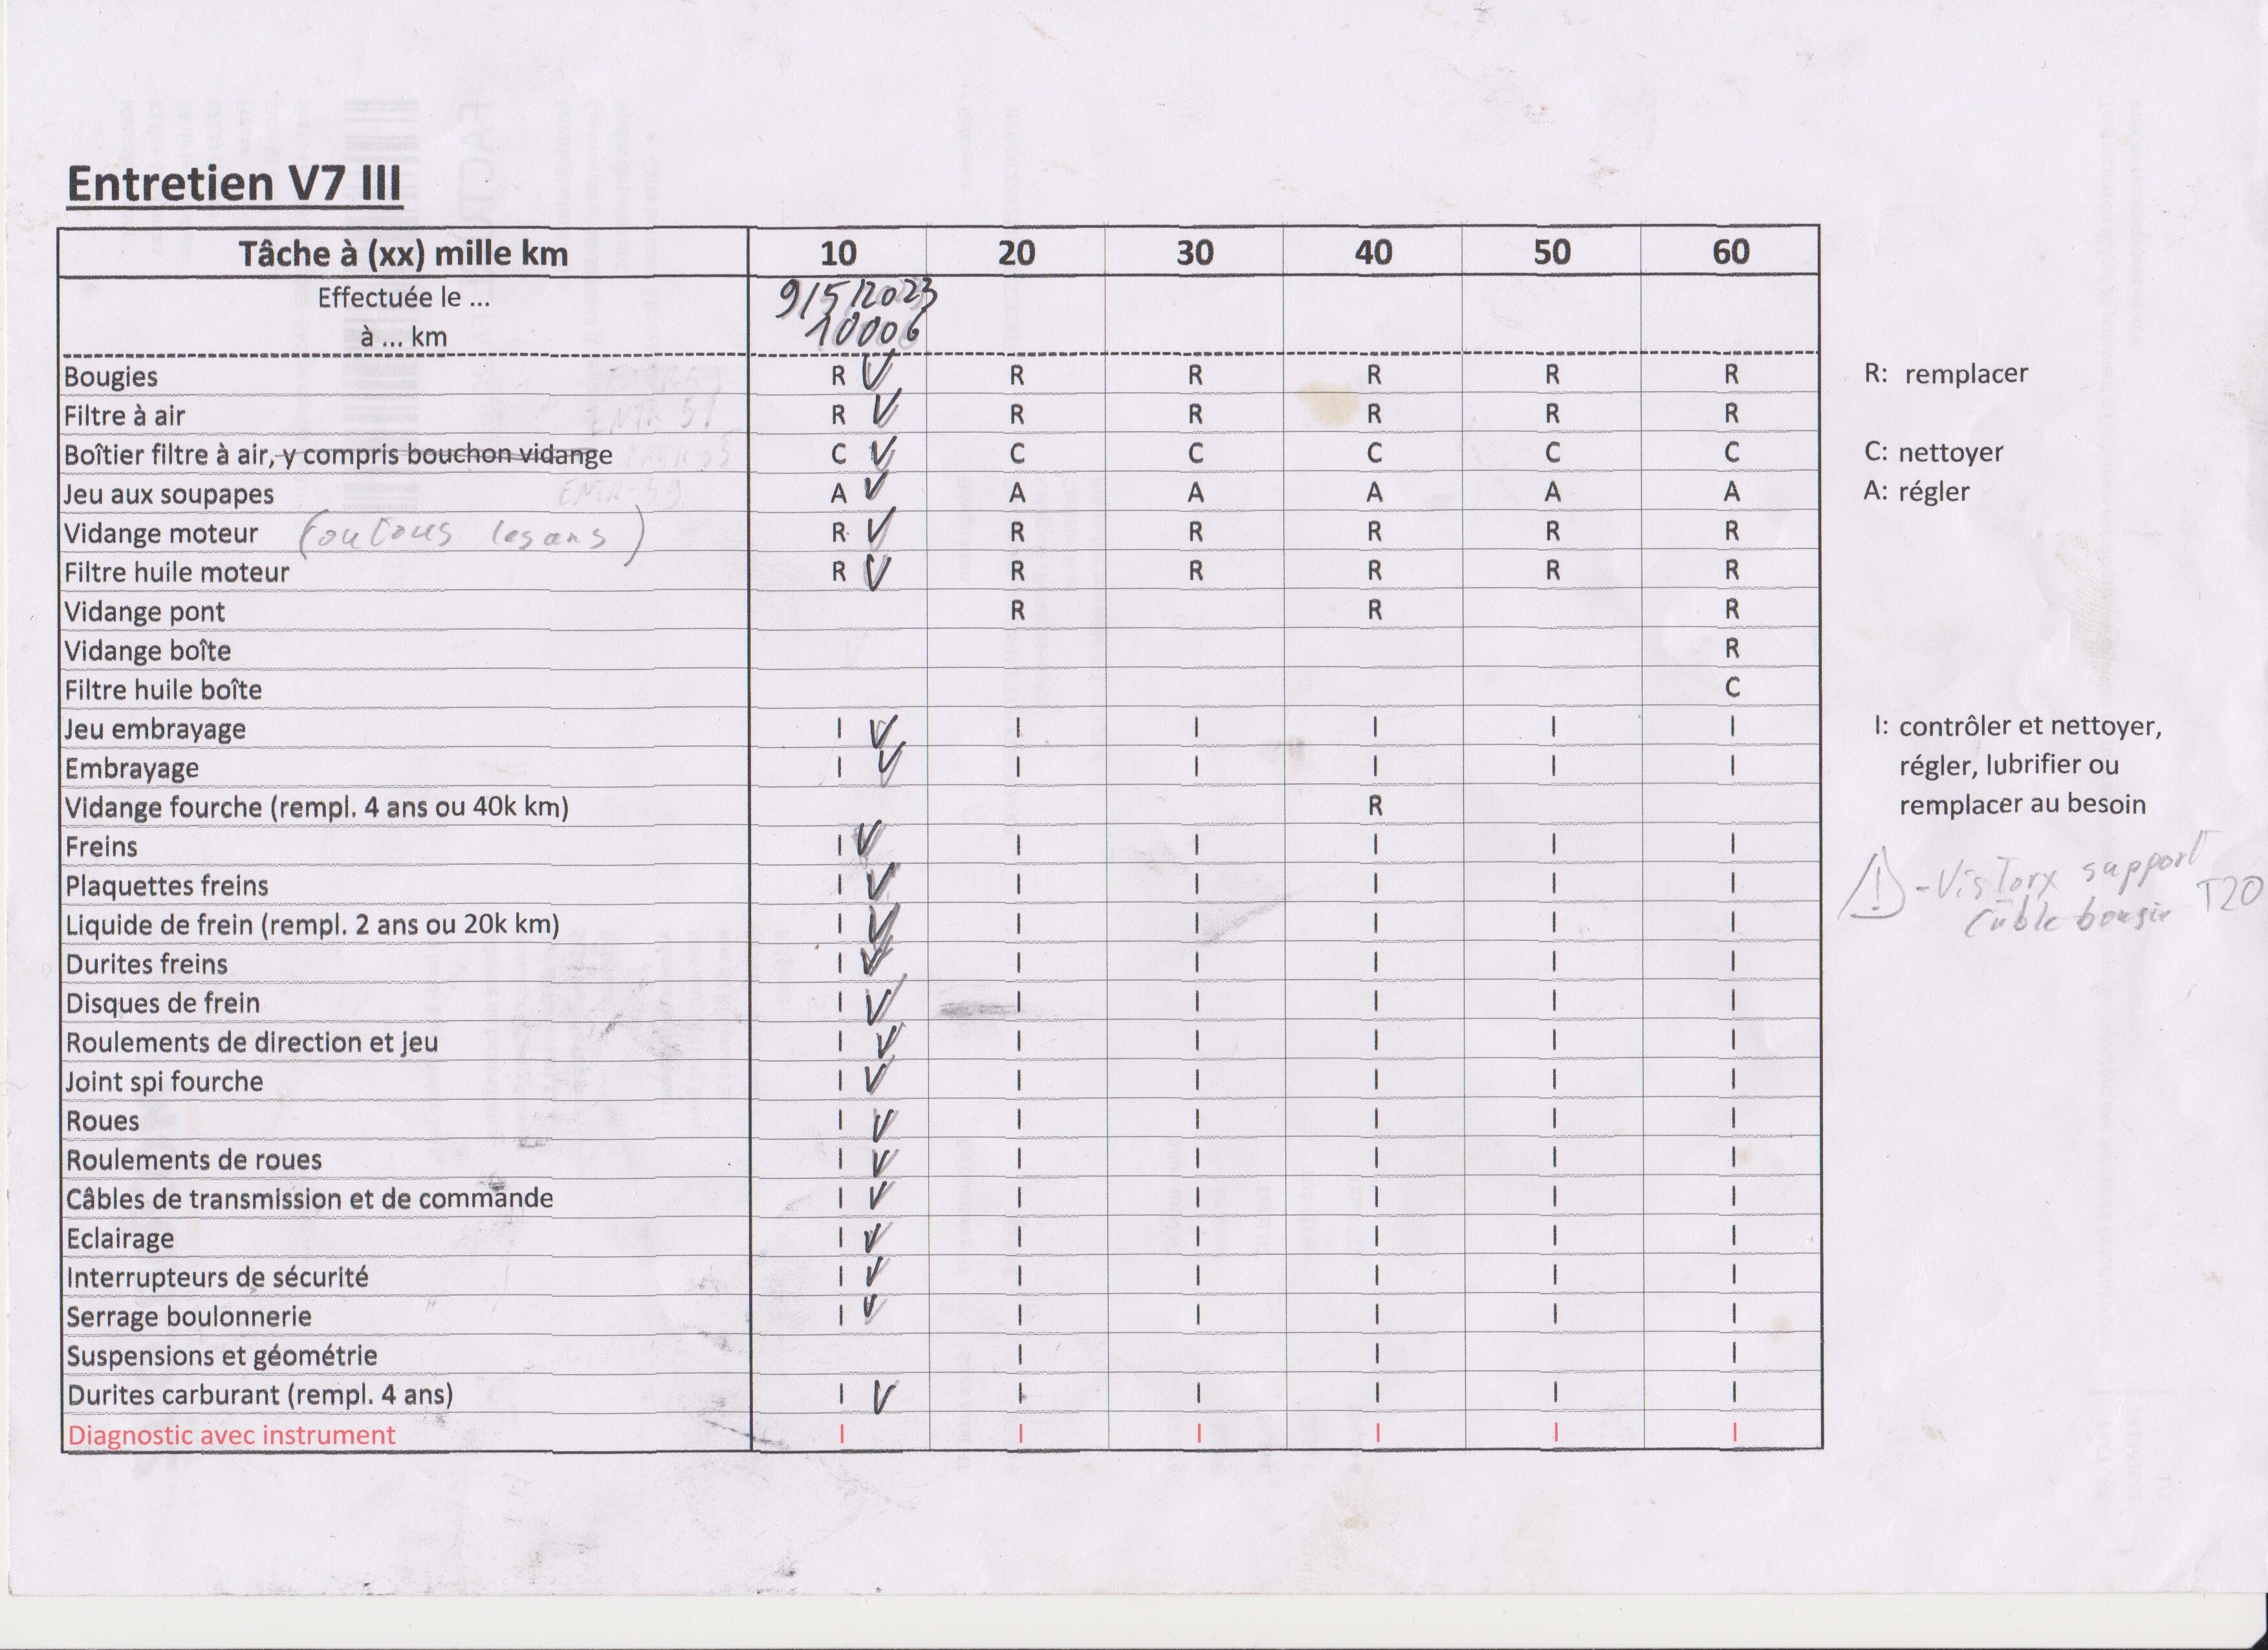 Entretien V7 III
Tâche à (xx) mille km 10 20 30 40 50 60
Effectuée le ... 9/5/2023
à ... km 10006
Bougies R V R R R R R R: remplacer
Filtre à air ENTR 51 R V R R R R R
Boîtier filtre à air, y compris bouchon vidange C V C C C C C C: nettoyer
Jeu aux soupapes ENTR-59 A V A A A A A A: régler
Vidange moteur (ou tous les ans) R V R R R R R
Filtre huile moteur R V R R R R R
Vidange pont R R R
Vidange boîte R
Filtre huile boîte C
Jeu embrayage I V I I I I I I: contrôler et nettoyer,
Embrayage I V I I I I I régler, lubrifier ou
Vidange fourche (rempl. 4 ans ou 40k km) R remplacer au besoin
Freins I V I I I I I
Plaquettes freins I V I I I I I ! - Vis Torx support T20
Liquide de frein (rempl. 2 ans ou 20k km) I V I I I I I câble bougie
Durites freins I V I I I I I
Disques de frein I V I I I I I
Roulements de direction et jeu I V I I I I I
Joint spi fourche I V I I I I I
Roues I V I I I I I
Roulements de roues I V I I I I I
Câbles de transmission et de commande I V I I I I I
Eclairage I V I I I I I
Interrupteurs de sécurité I V I I I I I
Serrage boulonnerie I V I I I I I
Suspensions et géométrie I I I
Durites carburant (rempl. 4 ans) I V I I I I I
Diagnostic avec instrument I I I I I I